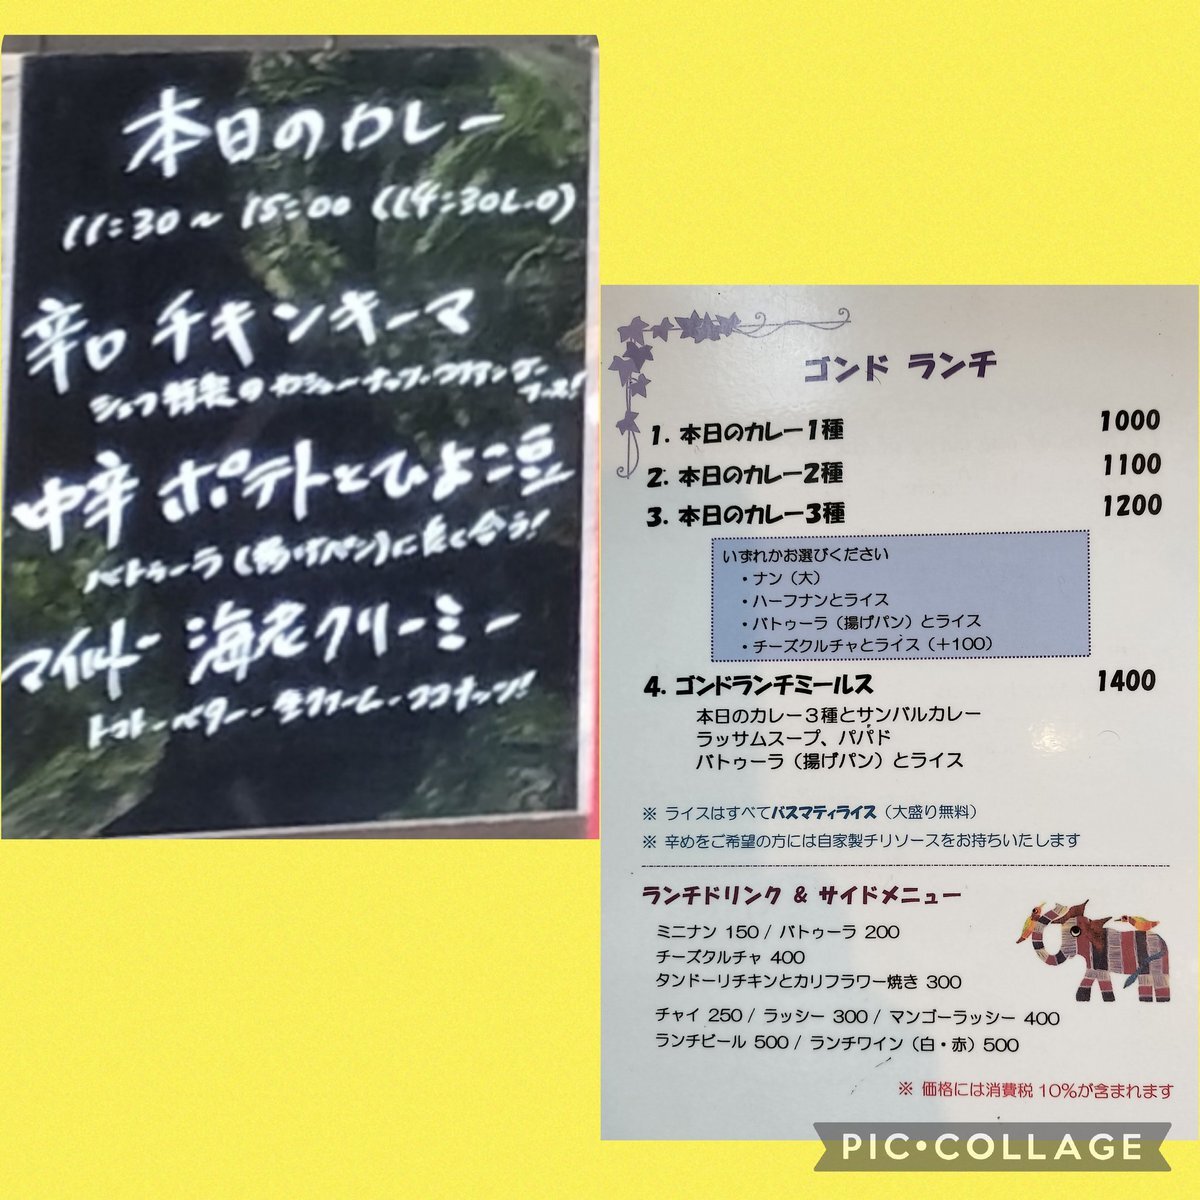 本日のカレー
11:30～15:00 (14:30L.O)
辛口 チキンキーマ
シェフ特製のカシューナッツ・コリアンダー
ソース!
中辛 ポテトとひよこ豆
バトゥーラ(揚げパン)に良く合う!
マイルド 海老クリーミー
トマト・バター・生クリーム・ココナッツ!
ゴンド ランチ
1. 本日のカレー1種 1000
2. 本日のカレー2種 1100
3. 本日のカレー3種 1200
いずれかお選びください
・ナン（大）
・ハーフナンとライス
・バトゥーラ（揚げパン）とライス
・チーズクルチャとライス（＋100）
4. ゴンドランチミールス 1400
本日のカレー３種とサンバルカレー
ラッサムスープ、パパド
バトゥーラ（揚げパン）とライス
※ ライスはすべてバスマティライス（大盛り無料）
※ 辛めをご希望の方には自家製チリソースをお持ちいたします
ランチドリンク & サイドメニュー
ミニナン 150 / バトゥーラ 200
チーズクルチャ 400
タンドーリチキンとカリフラワー焼き 300
チャイ 250 / ラッシー 300 / マンゴーラッシー 400
ランチビール 500 / ランチワイン（白・赤）500
※ 価格には消費税10%が含まれます
PIC•COLLAGE